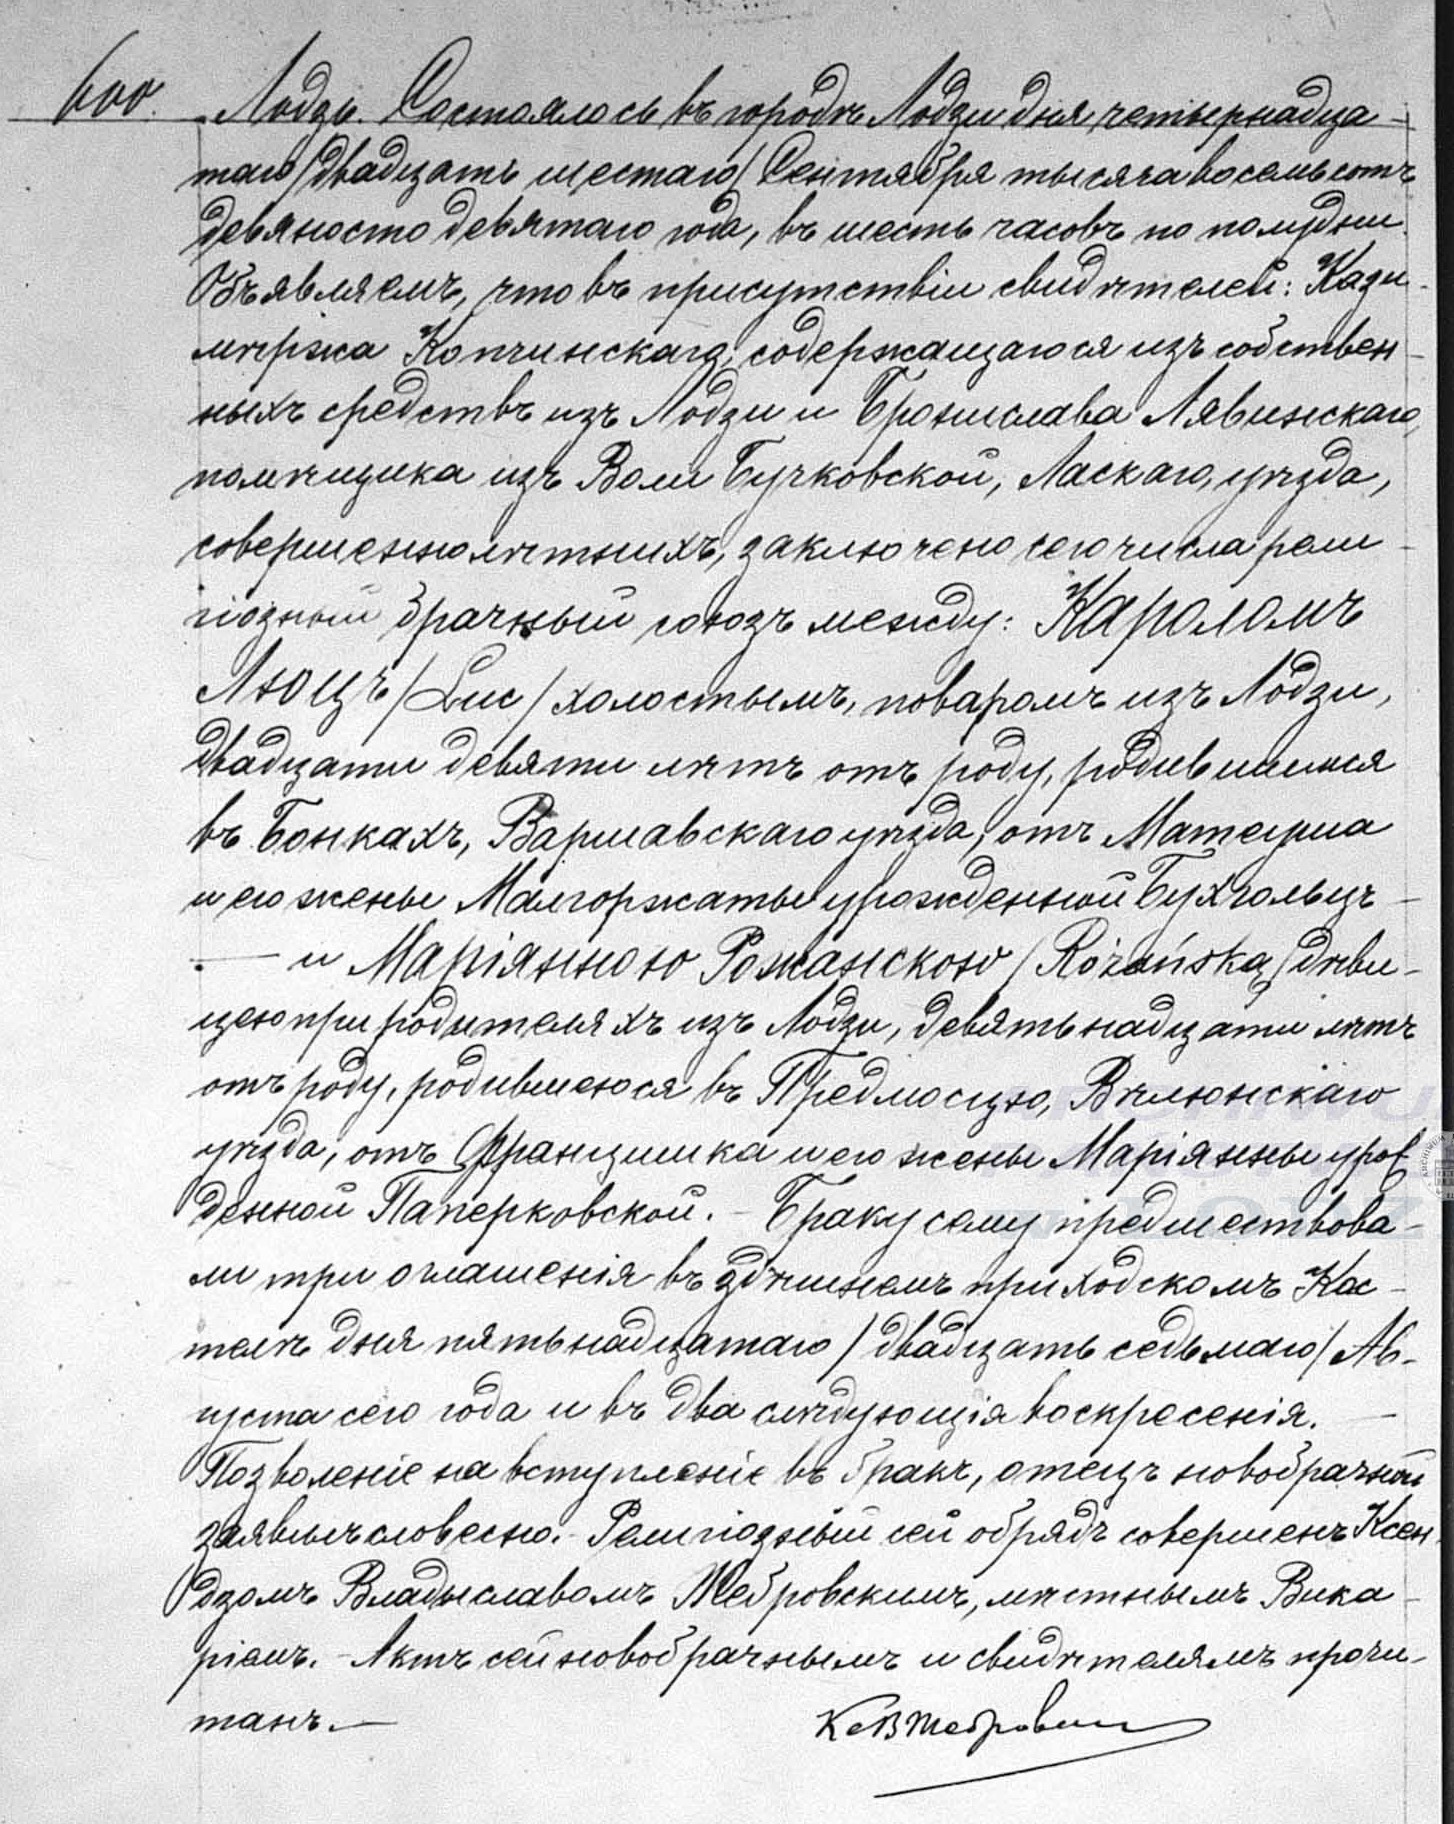 600. Лодзь. Состоялось въ городѣ Лодзи дня четырнадца-
таго /двадцать шестаго/ Сентября тысяча восемьсотъ
девяносто девятаго года, въ шесть часовъ по полудни.
Объявляемъ, что въ присутствіи свидѣтелей: Кази-
мѣржа Копчинскаго, содержащагося изъ собствен-
ныхъ средствъ изъ Лодзи и Бронислава Лявинскаго,
помѣщика изъ Воли Бучковской, Ласкаго уѣзда,
совершеннолѣтнихъ, заключенъ сего числа рели-
гіозный брачный союзъ между: Кароломъ
Люцъ /Luc/ холостымъ, поваромъ изъ Лодзи,
двадцати девяти лѣтъ отъ роду, родившимся
въ Бонкахъ, Варшавскаго уѣзда, отъ Матеуша
и его жены Малгоржаты урожденной Бухгольцъ -
- и Маріянною Рожанскою /Różańska/ дѣви-
цею при родителяхъ изъ Лодзи, девятьнадцати лѣтъ
отъ роду, родившеюся въ Предмосцю, Вѣлюнскаго
уѣзда, отъ Францишка и его жены Маріянны урож-
денной Паперковской. - Браку сему предшествова-
ли три оглашенія въ здѣшнемъ приходскомъ Кос-
телѣ дня пятьнадцатаго /двадцать седьмаго/ Ав-
густа сего года и въ два слѣдующія воскресенія. -
Позволеніе на вступленіе въ бракъ, отецъ новобрачной
заявилъ словесно. - Религіозный сей обрядъ совершенъ Ксен-
дзомъ Владыславомъ Жебровскимъ, мѣстнымъ Вика-
ріемъ. - Актъ сей новобрачнымъ и свидѣтелямъ прочи-
танъ. -
Кс В Жебровски